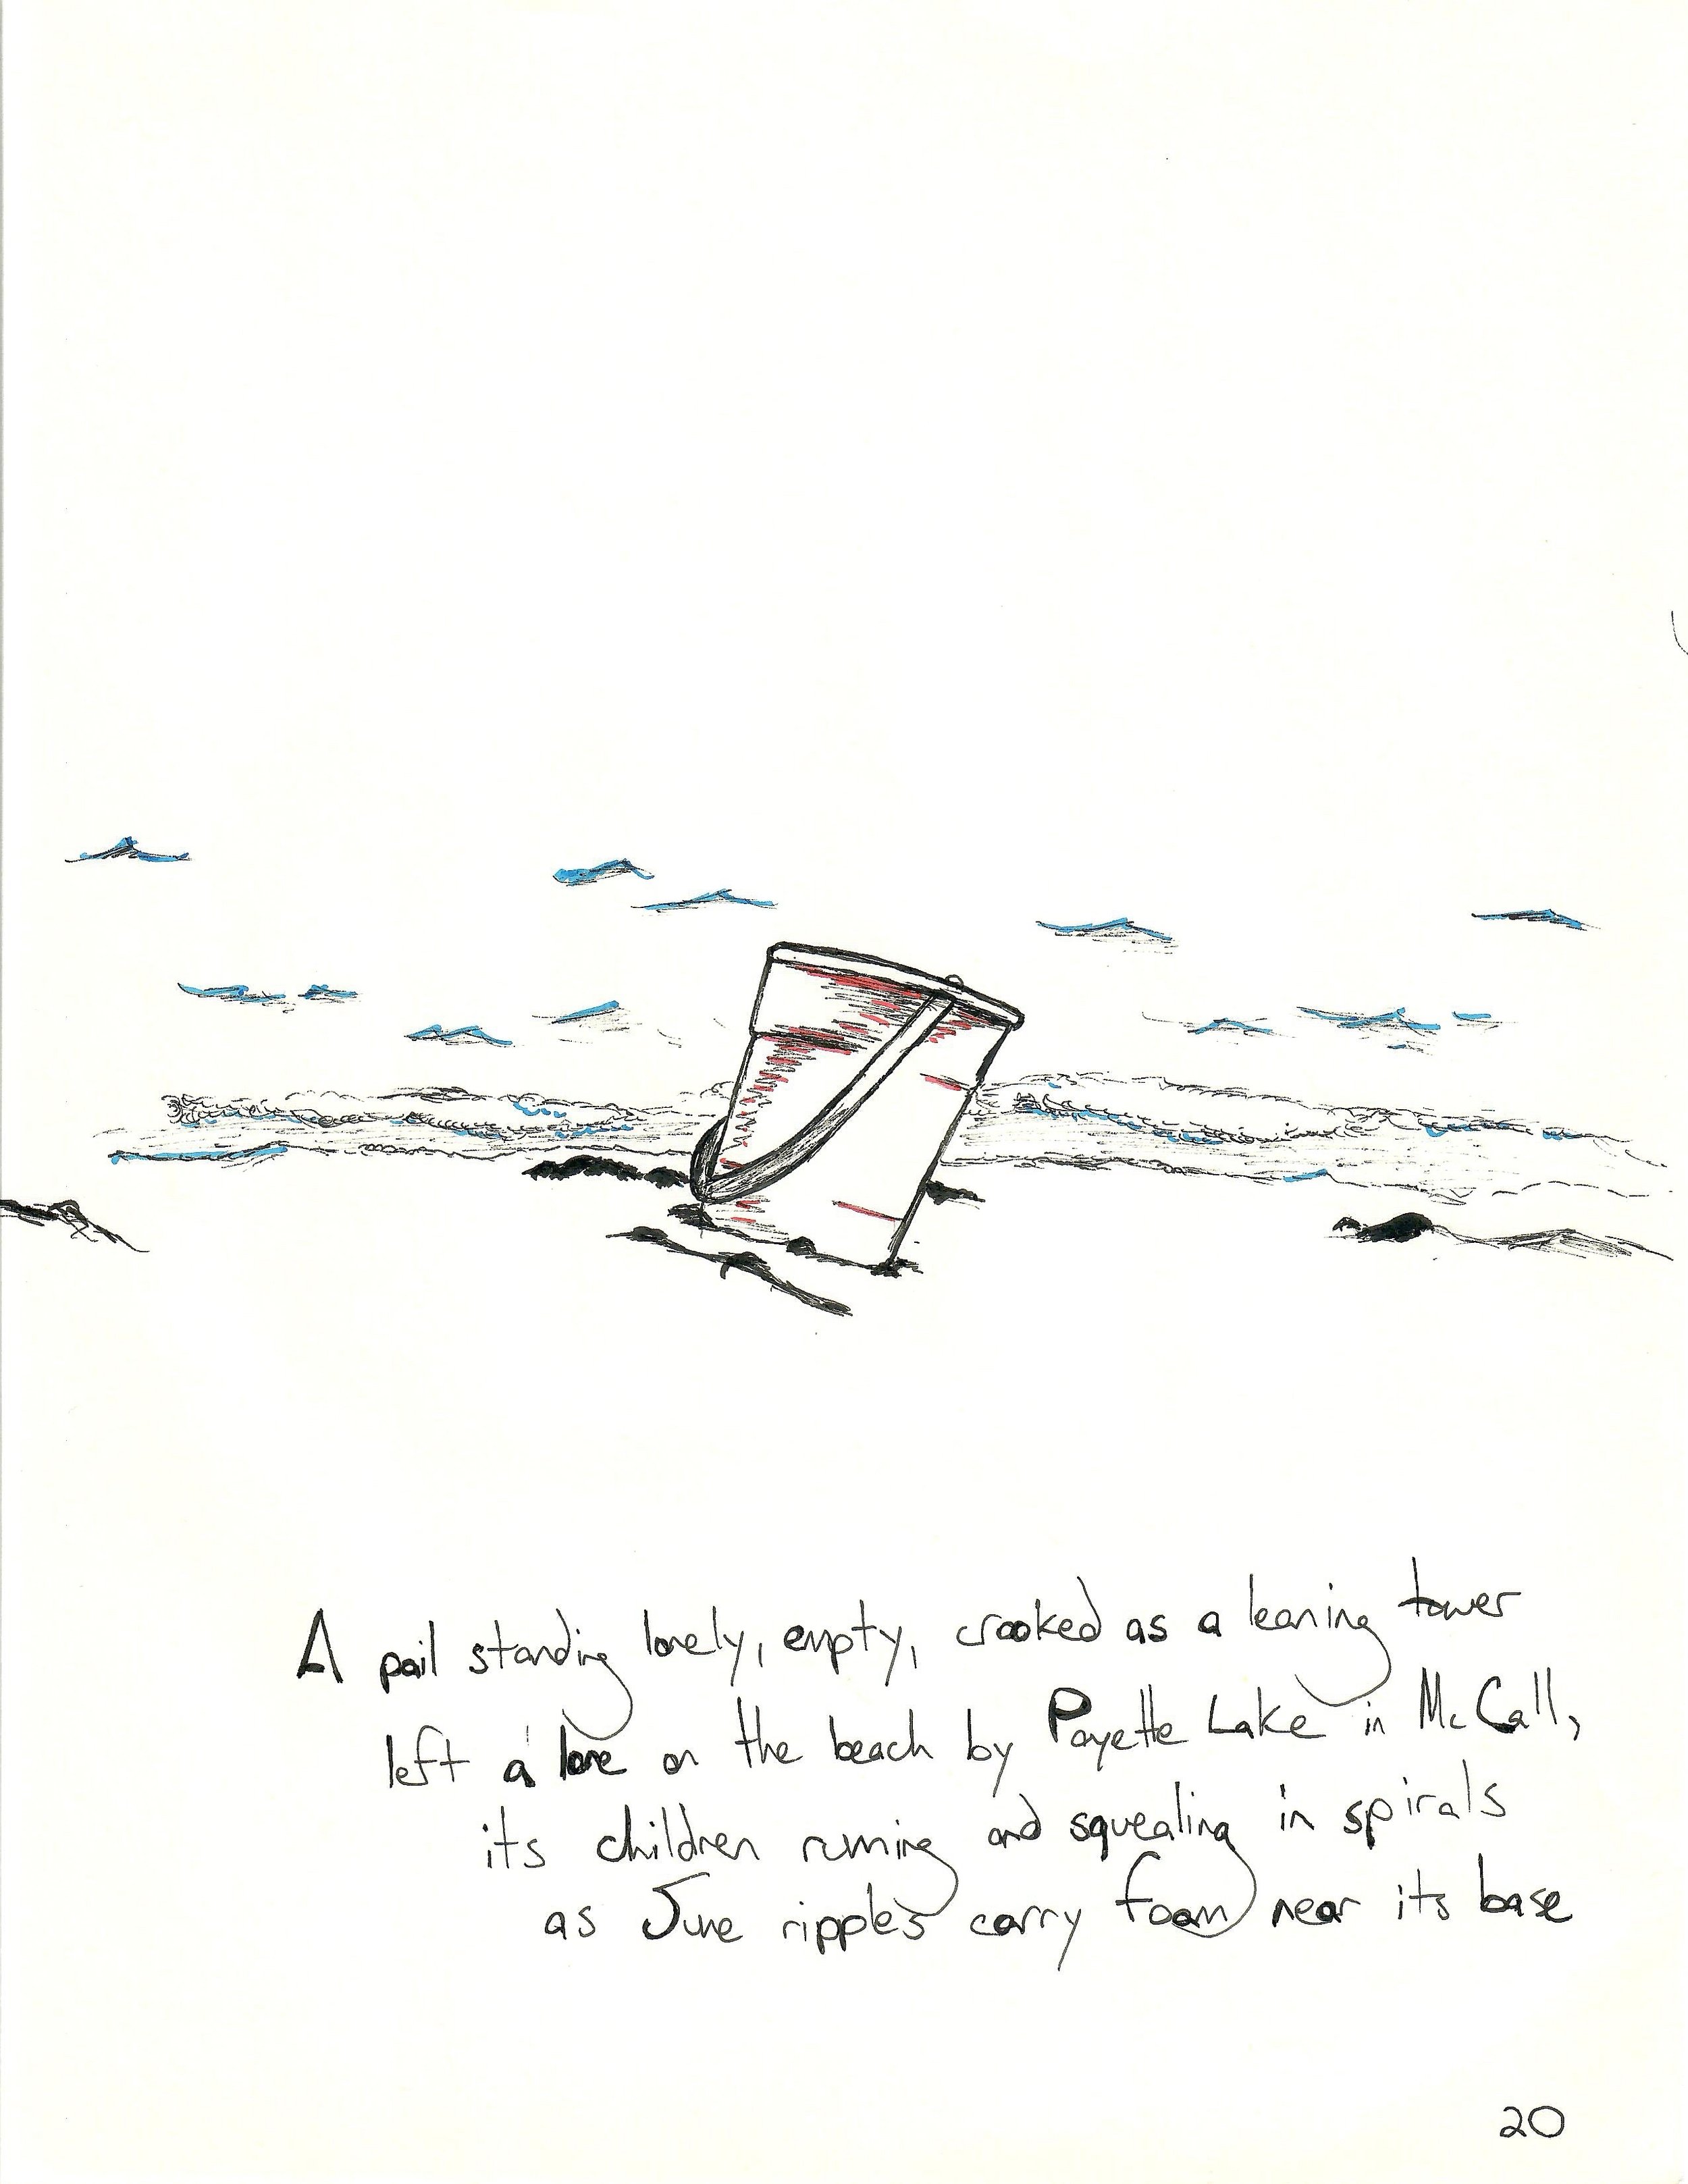 A pail standing lonely, empty, crooked as a leaning tower
left a lone on the beach by Payette Lake in McCall,
its children running and squealing in spirals
as June ripples carry foam near its base
20